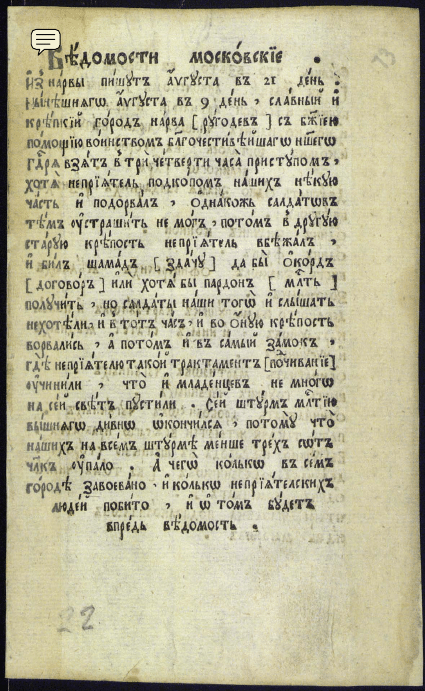 Вѣ́домости моско́вскїе .
и҆з̾ на́рвы пи́шутъ а҆́ѵгуста въ 21 де́нь :
ны́нѣшнягѡ а҆́ѵгуста въ 9 де́нь , сла́вный и҆
крѣ́пкїй го́родъ на́рва [ рꙋ́годевъ ] съ бж҃їею
помощїю во́инствомъ бл҃гочести́вѣйшагѡ нш҃егѡ
гд҃ря взѧ́тъ в трѝ че́тверти часа̀ присту́помъ ,
хотѧ̀ непрїѧ́тель подко́помъ на́шихъ нѣ́кую
ча́сть и҆ подорва́лъ , ѻ҆дна́кожь салда́тѡвъ
тѣ́мъ ѹ҆страши́ть не мо́гъ , пото́мъ в дрꙋгꙋ́ю
ста́рꙋю крѣ́пость непрїѧ́тель вбѣжа́лъ ,
и҆ би́лъ шама́дъ [ зда́чꙋ ] да бы̀ ѻ҆ко́рдъ
[ догово́ръ ] или хотѧ̀ бы пардо́нъ [ мл҃ть ]
получи́ть , но салда́ты на́ши тогѡ̀ и҆ слы́шать
нехотѣ́ли , и҆ в то́тъ ча́съ , и҆ во ѻ҆́нꙋю крѣ́пость
ворвали́сь , а҆ пото́мъ и҆ въ са́мый за́мокъ ,
гдѣ̀ непрїѧ́телю тако́й тракта́ментъ [по́чиванїе]
ѹ҆чини́ли , что̀ и҆ младе́нцевъ не мно́гѡ
на се́й свѣ́тъ пусти́ли . Се́й штꙋ́рмъ мл҃тїю
вы́шнягѡ ди́внѡ ѡ҆кончи́лся , потомꙋ̀ что̀
на́шихъ на все́мъ штꙋ́рмѣ ме́нше тре́хъ сѡ́тъ
чл҃къ ѹ҆па́ло . А҆ чегѡ̀ ко́лькѡ въ се́мъ
го́родѣ завоева́но , и҆ ко́лькѡ непрїѧ́телскихъ
люде́й поби́то , и҆ ѡ҆ то́мъ бꙋ́детъ
впре́дь вѣ́домость .
22